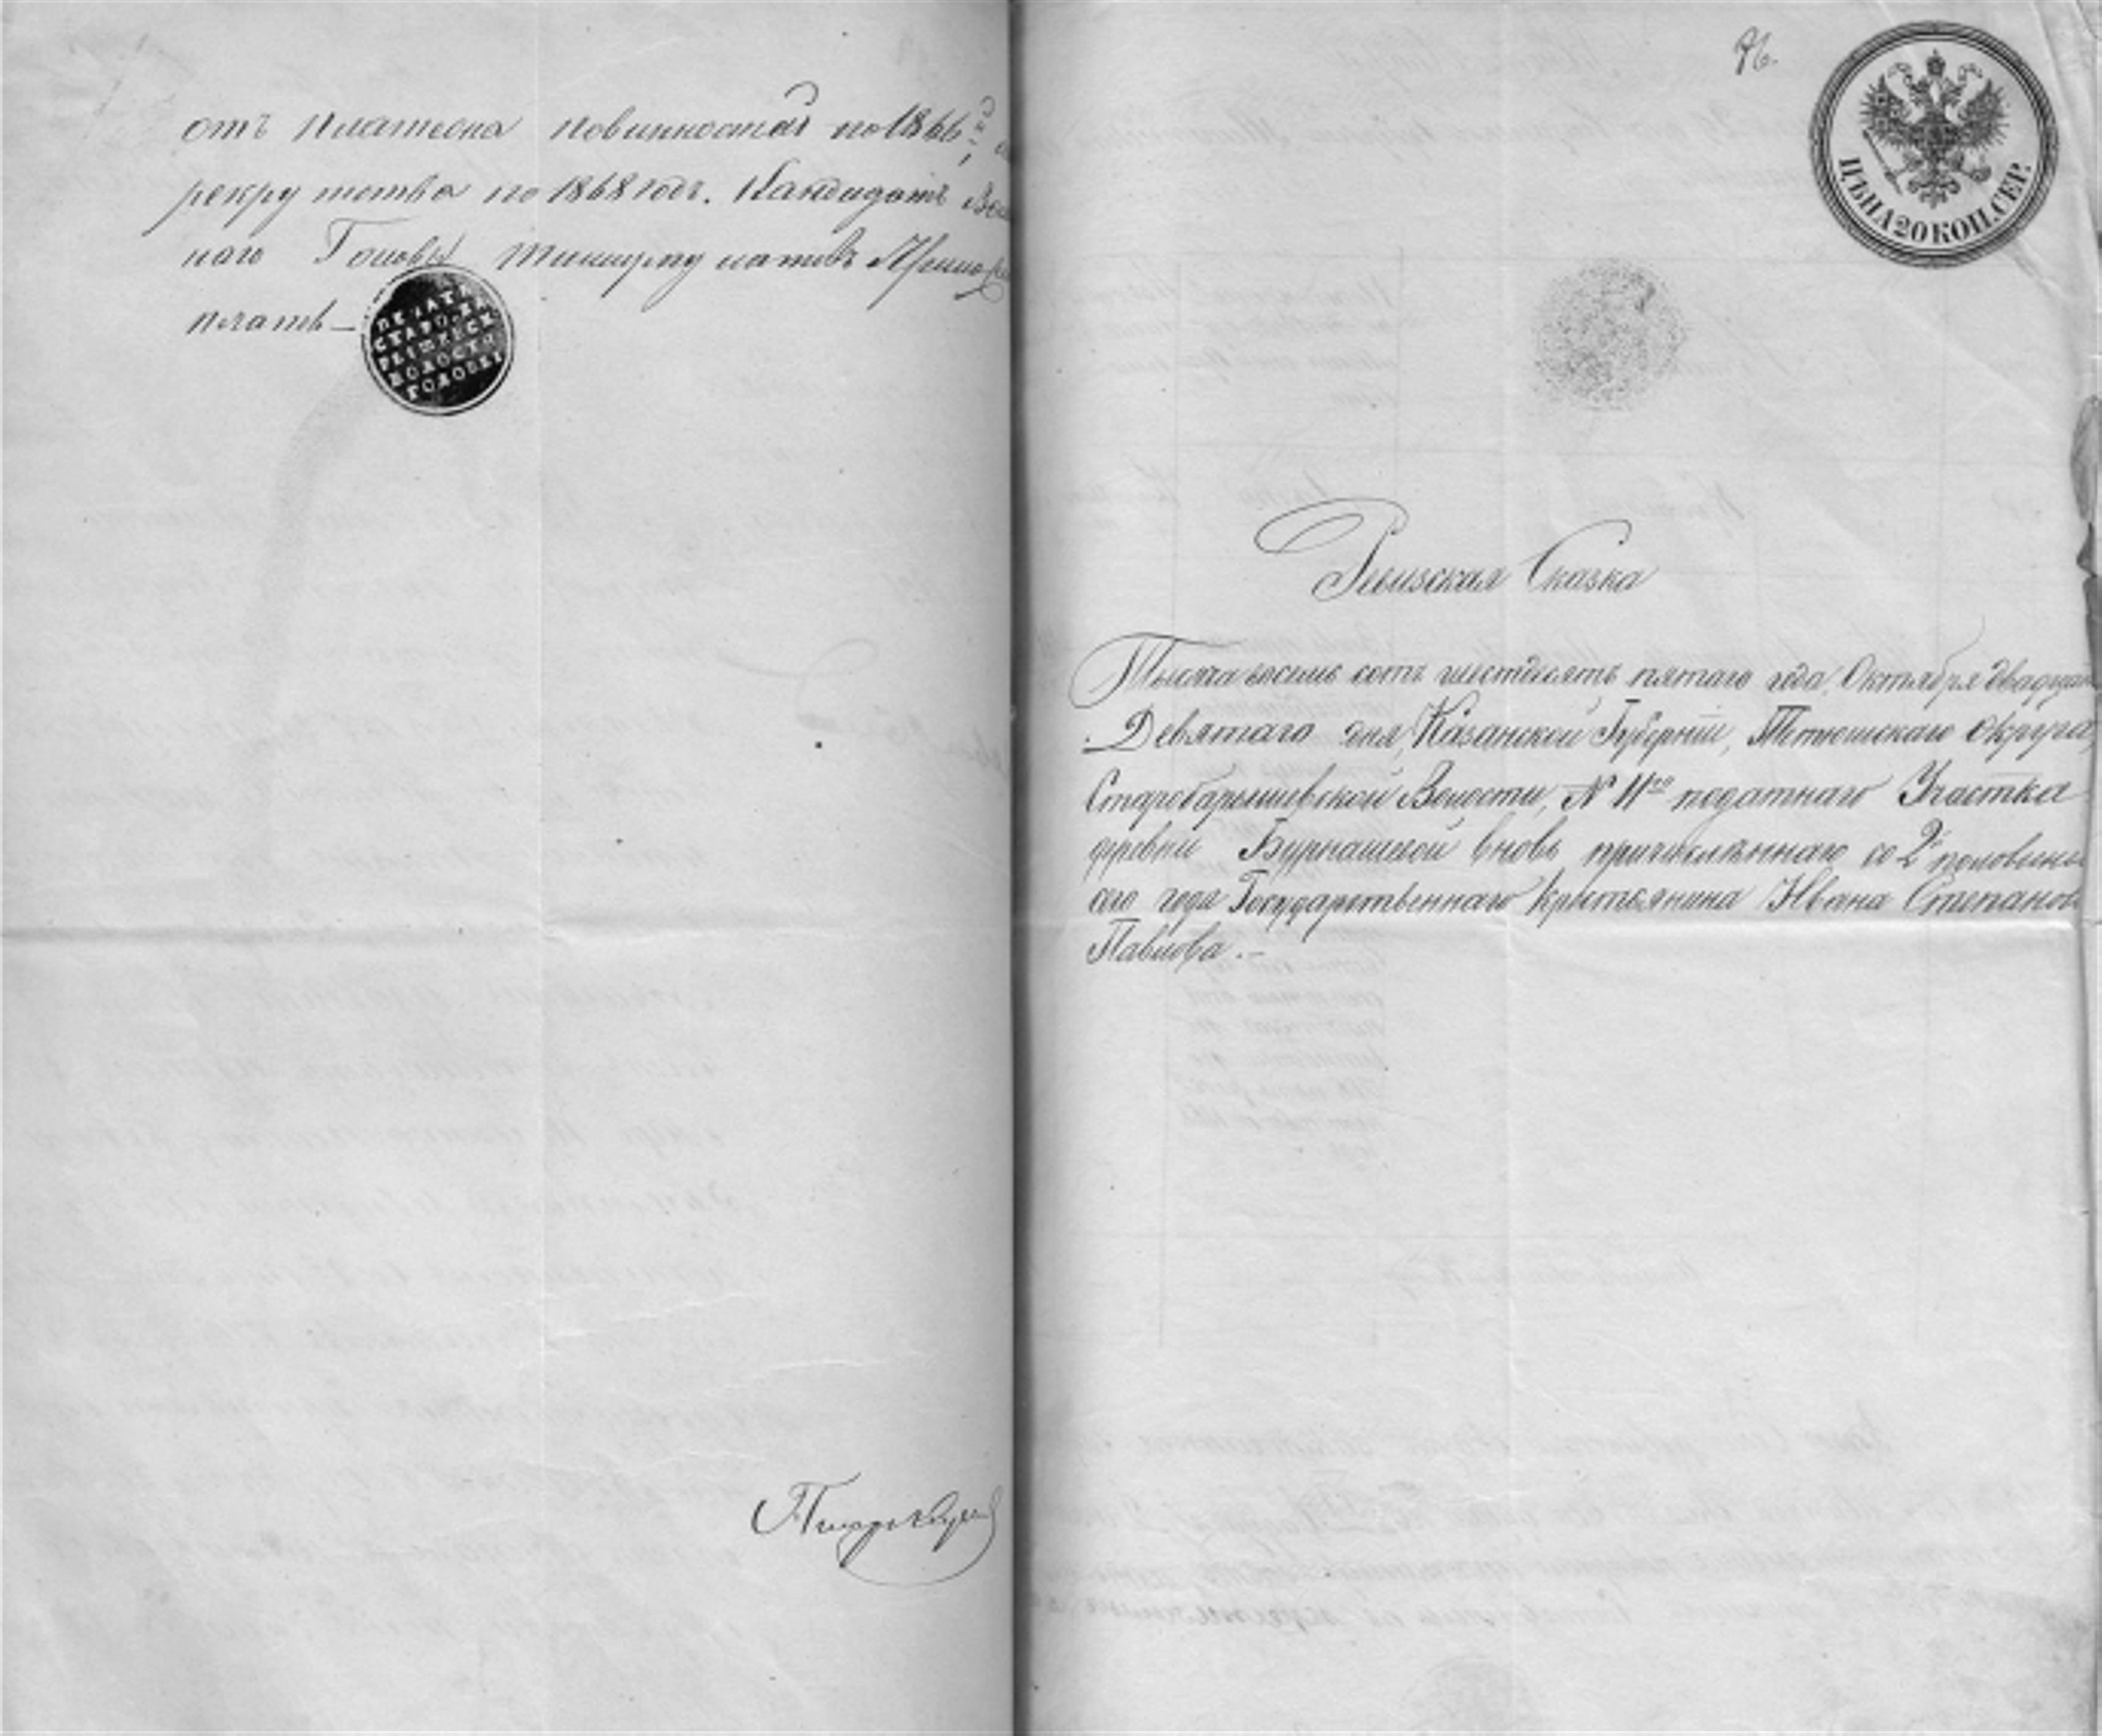 отъ платежа повинностей по 1866
рекрутства по 1868 годъ. Кандидатъ
наго Головы
печать —
ПЕЧАТЬ
СТАРОБА
РЫШЕВСК
ВОЛОСТИ
ГОЛОВЫ
76.
ЦѢНА 20 КОП. СЕР.
Ревизская Сказка
Тысяча восемь сотъ шестдесятъ пятаго года, Октября двадцать
Девятаго дня, Казанской Губерніи, Тетюшскаго округа,
Старобарышевской Волости, № 11го податнаго Участка
деревни Бурнашевой вновь причисленнаго со 2й половины
сего года Государственнаго крестьянина Ивана Степанова
Павлова. —